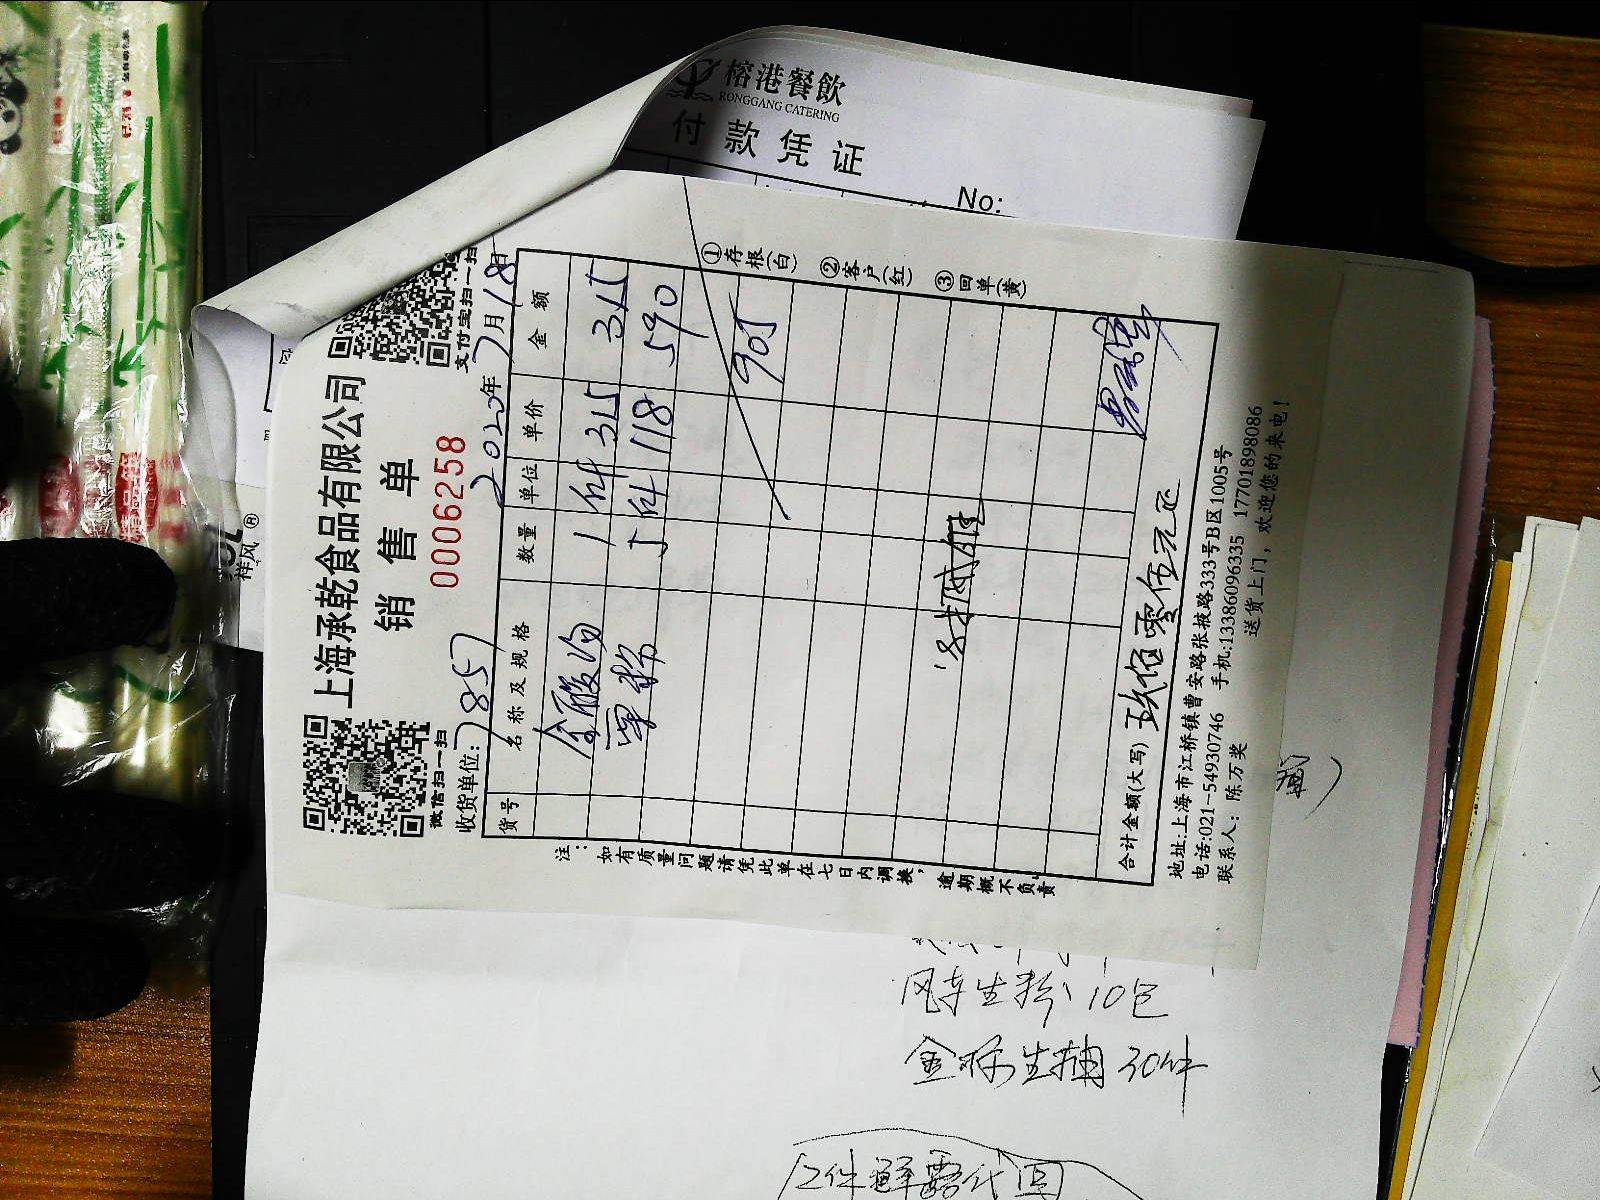 榕港餐飲
RONGGANG CATERING
付款凭证
No:
上海承乾食品有限公司
销售单
0006258
微信扫一扫
支付宝扫一扫
收货单位: 7857 2020年7月18日
货号 名称及规格 数量 单位 单价 金额
金酸汤 1 件 315 315
粟粉 5 件 118 590
905
合计金额(大写) 玖佰零伍元正
地址:上海市江桥镇曹安路张掖路333号B区1005号
电话:021-54930746 手机:13386096335 17701898086
联系人: 陈万奖 送货上门，欢迎您的来电!
注: 如有质量问题请凭此单在七日内调换，逾期概不负责
①存根(白) ②客户(红) ③回单(黄)
样风®
风车生粉 10包
金标生抽 30件
12件鲜露代回